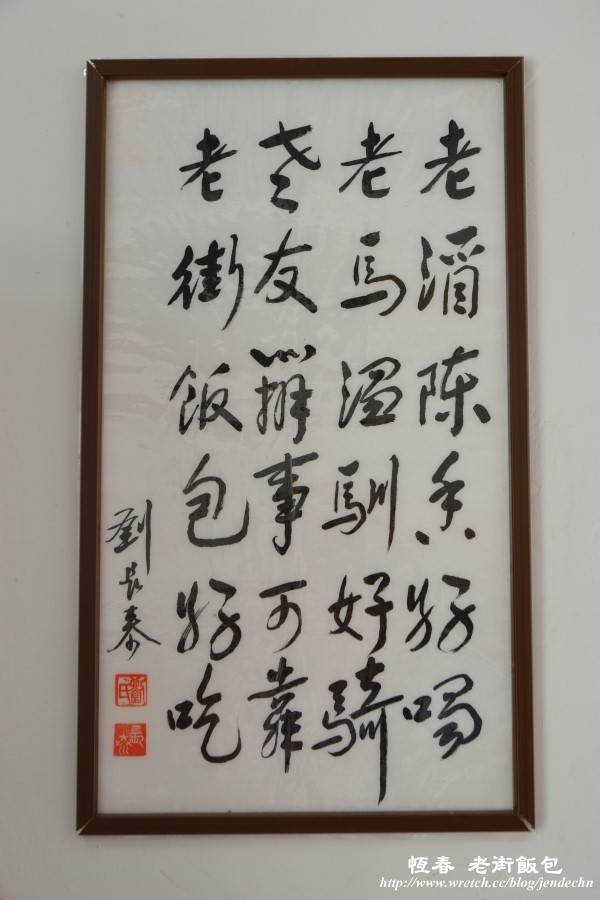 老酒陳香好喝
老馬溫馴好騎
老友辦事可靠
老街飯包好吃
劉長泰
恆春 老街飯包
http://www.wretch.cc/blog/jendechn